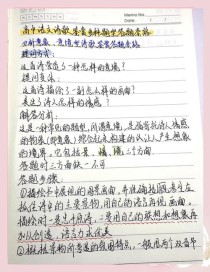 高中语文诗歌鉴赏多种题型答题套路
一、分析意象、意境型诗歌鉴赏答题套路
提问方式：
这首诗营造了一种怎样的意境？
提问变体：
这首诗描绘了一副怎么样的画面？
表达了诗人怎么样的情感？
解答分析：
这是一种常见的题型，所谓意境，是指寄托诗人情感
的物象（即意象）综合起来构建的让人产生想象
的境界，它包括景、情、境三个方面
答题时三方面缺一不可
答题步骤
①描绘诗中展现的图景画面，考生应抓住
抓住诗中的主要景物，用自己的语言再现画面。
描绘时一要忠于原诗，二要用自己的联想和想象再
加以创造，语言力求优美
②概括景物所营造的氛围特点，一般用两个双音节